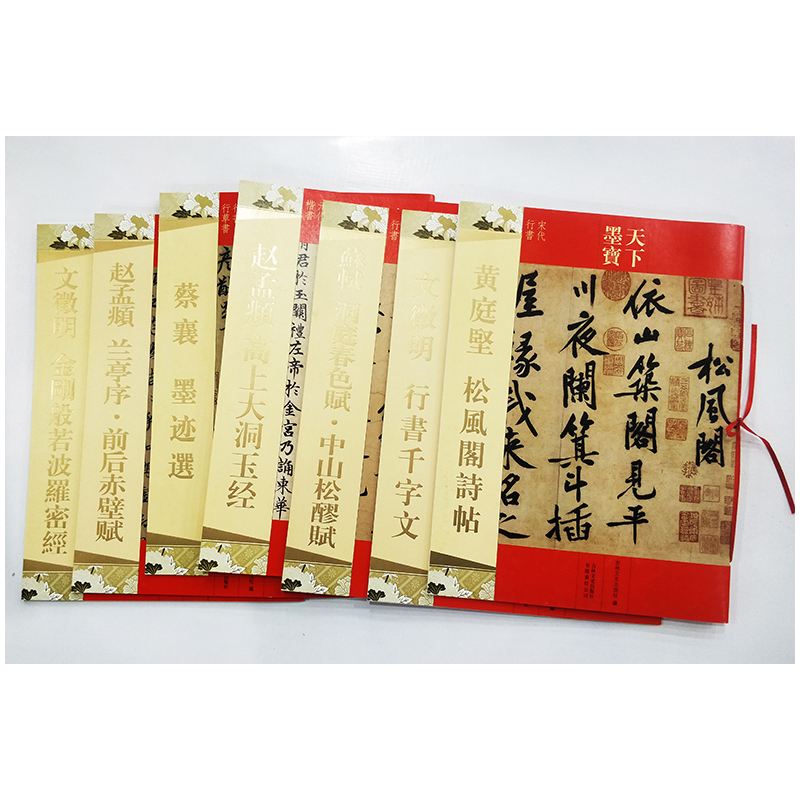 文徵明 金剛般若波羅密經
赵孟頫 兰亭序·前后赤壁赋
蔡襄 墨迹選
行草書
赵孟頫 高上大洞玉经
楷書
君於玉闕禮左帝於金宮乃誦東華
洞庭春色賦·中山松醪賦
行書
文徵明 行書千字文
黄庭堅 松風閣詩帖
宋代
行書
天下
墨寶
松風閣
依山築閣見平
川夜闌箕斗插
屋椽我来名之